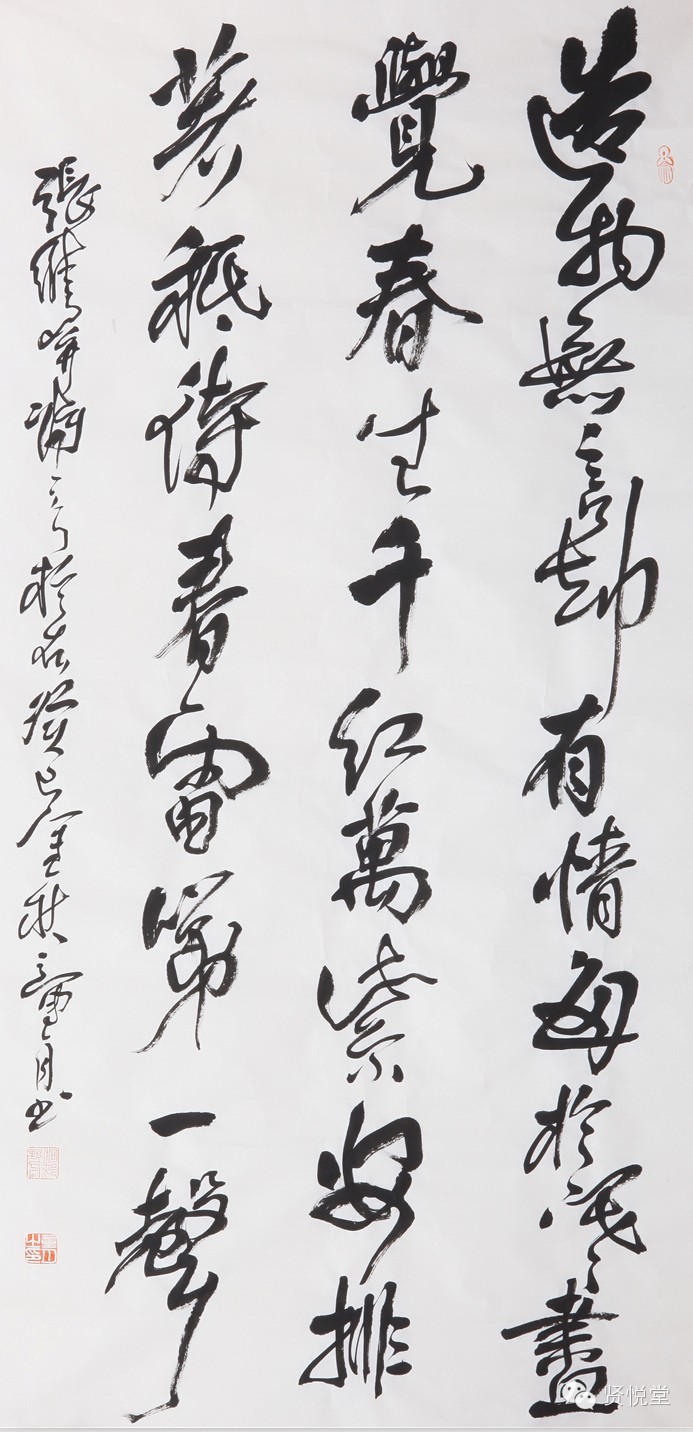 造物無言却有情每於寒盡
覺春生千紅萬紫安排
著祇待春雷第一聲
張維屏於癸巳金秋月书
贤悦堂